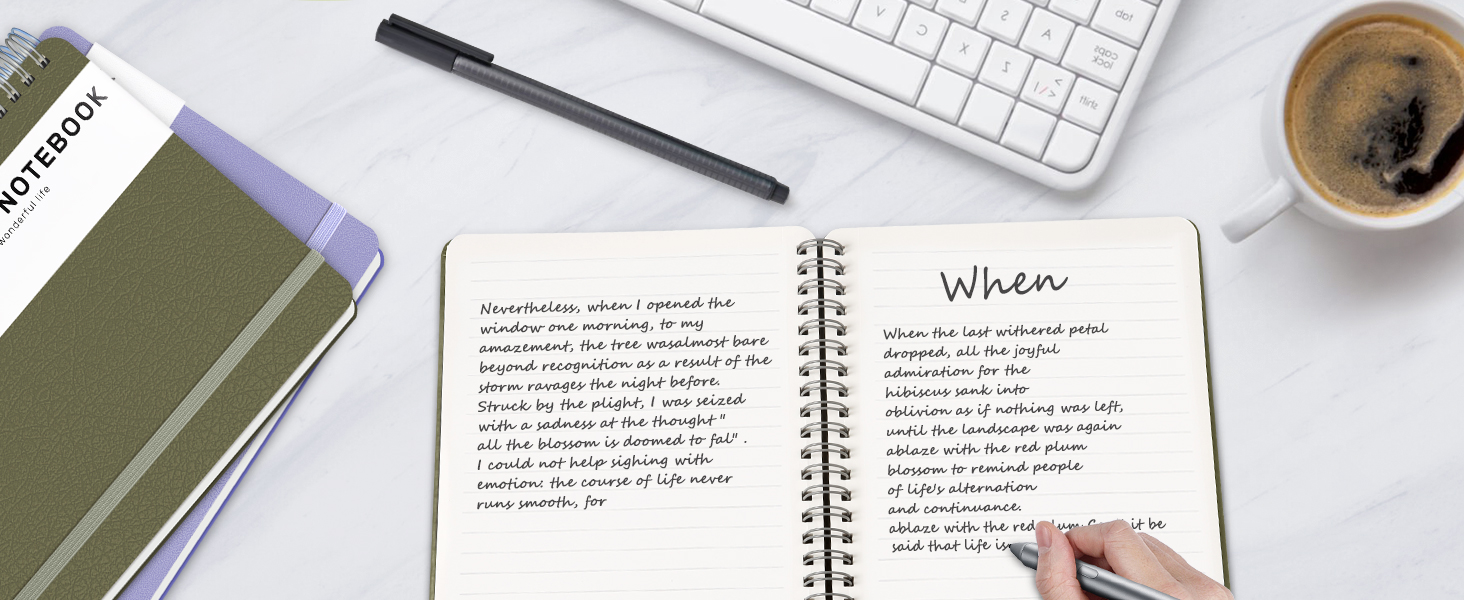 NOTEBOOK
wonderful life
tab
caps
lock
shift
A
S
Z
X
C
V
Nevertheless, when I opened the
window one morning, to my
amazement, the tree wasalmost bare
beyond recognition as a result of the
storm ravages the night before.
Struck by the plight, I was seized
with a sadness at the thought "
all the blossom is doomed to fal" .
I could not help sighing with
emotion: the course of life never
runs smooth, for
When
When the last withered petal
dropped, all the joyful
admiration for the
hibiscus sank into
oblivion as if nothing was left,
until the landscape was again
ablaze with the red plum
blossom to remind people
of life's alternation
and continuance.
ablaze with the red plum it be
said that life is